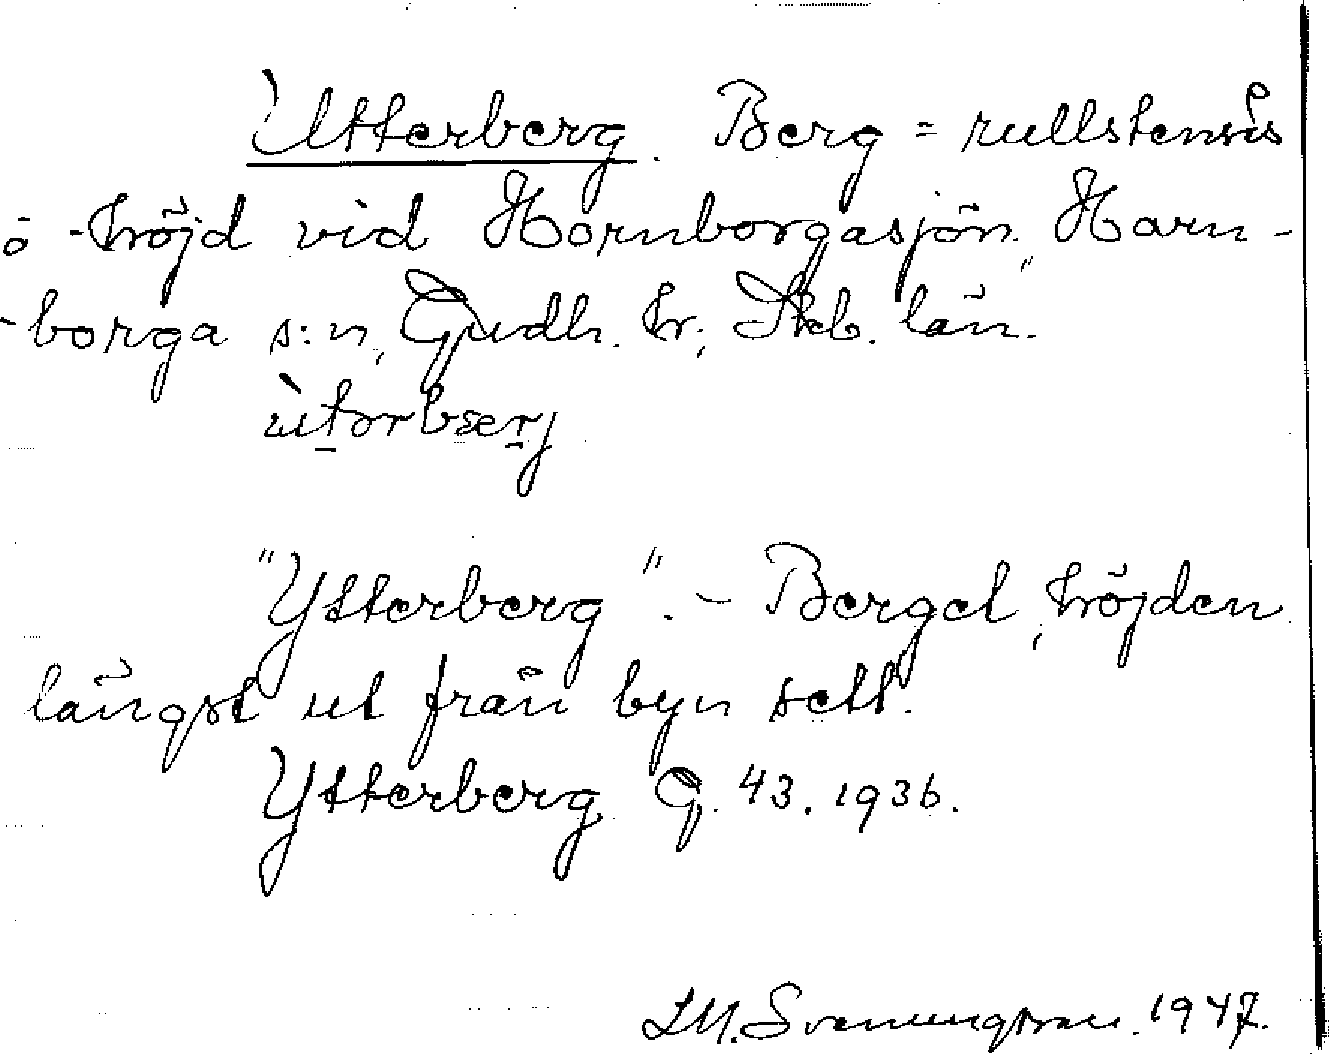 Utterberg. Berg = rullstensås
ö - höjd vid Hornborgasjön, Horn-
-borga s:n, Gudh. hr; Skb. län.
ùtorbærj
"Ytterberg". - Berget, höjden
längst ut från byn sett.
Ytterberg G. 43. 1936.
1947.